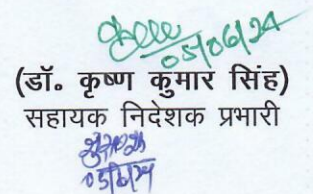 05/06/24
(डॉ० कृष्ण कुमार सिंह)
सहायक निदेशक प्रभारी
05/6/24